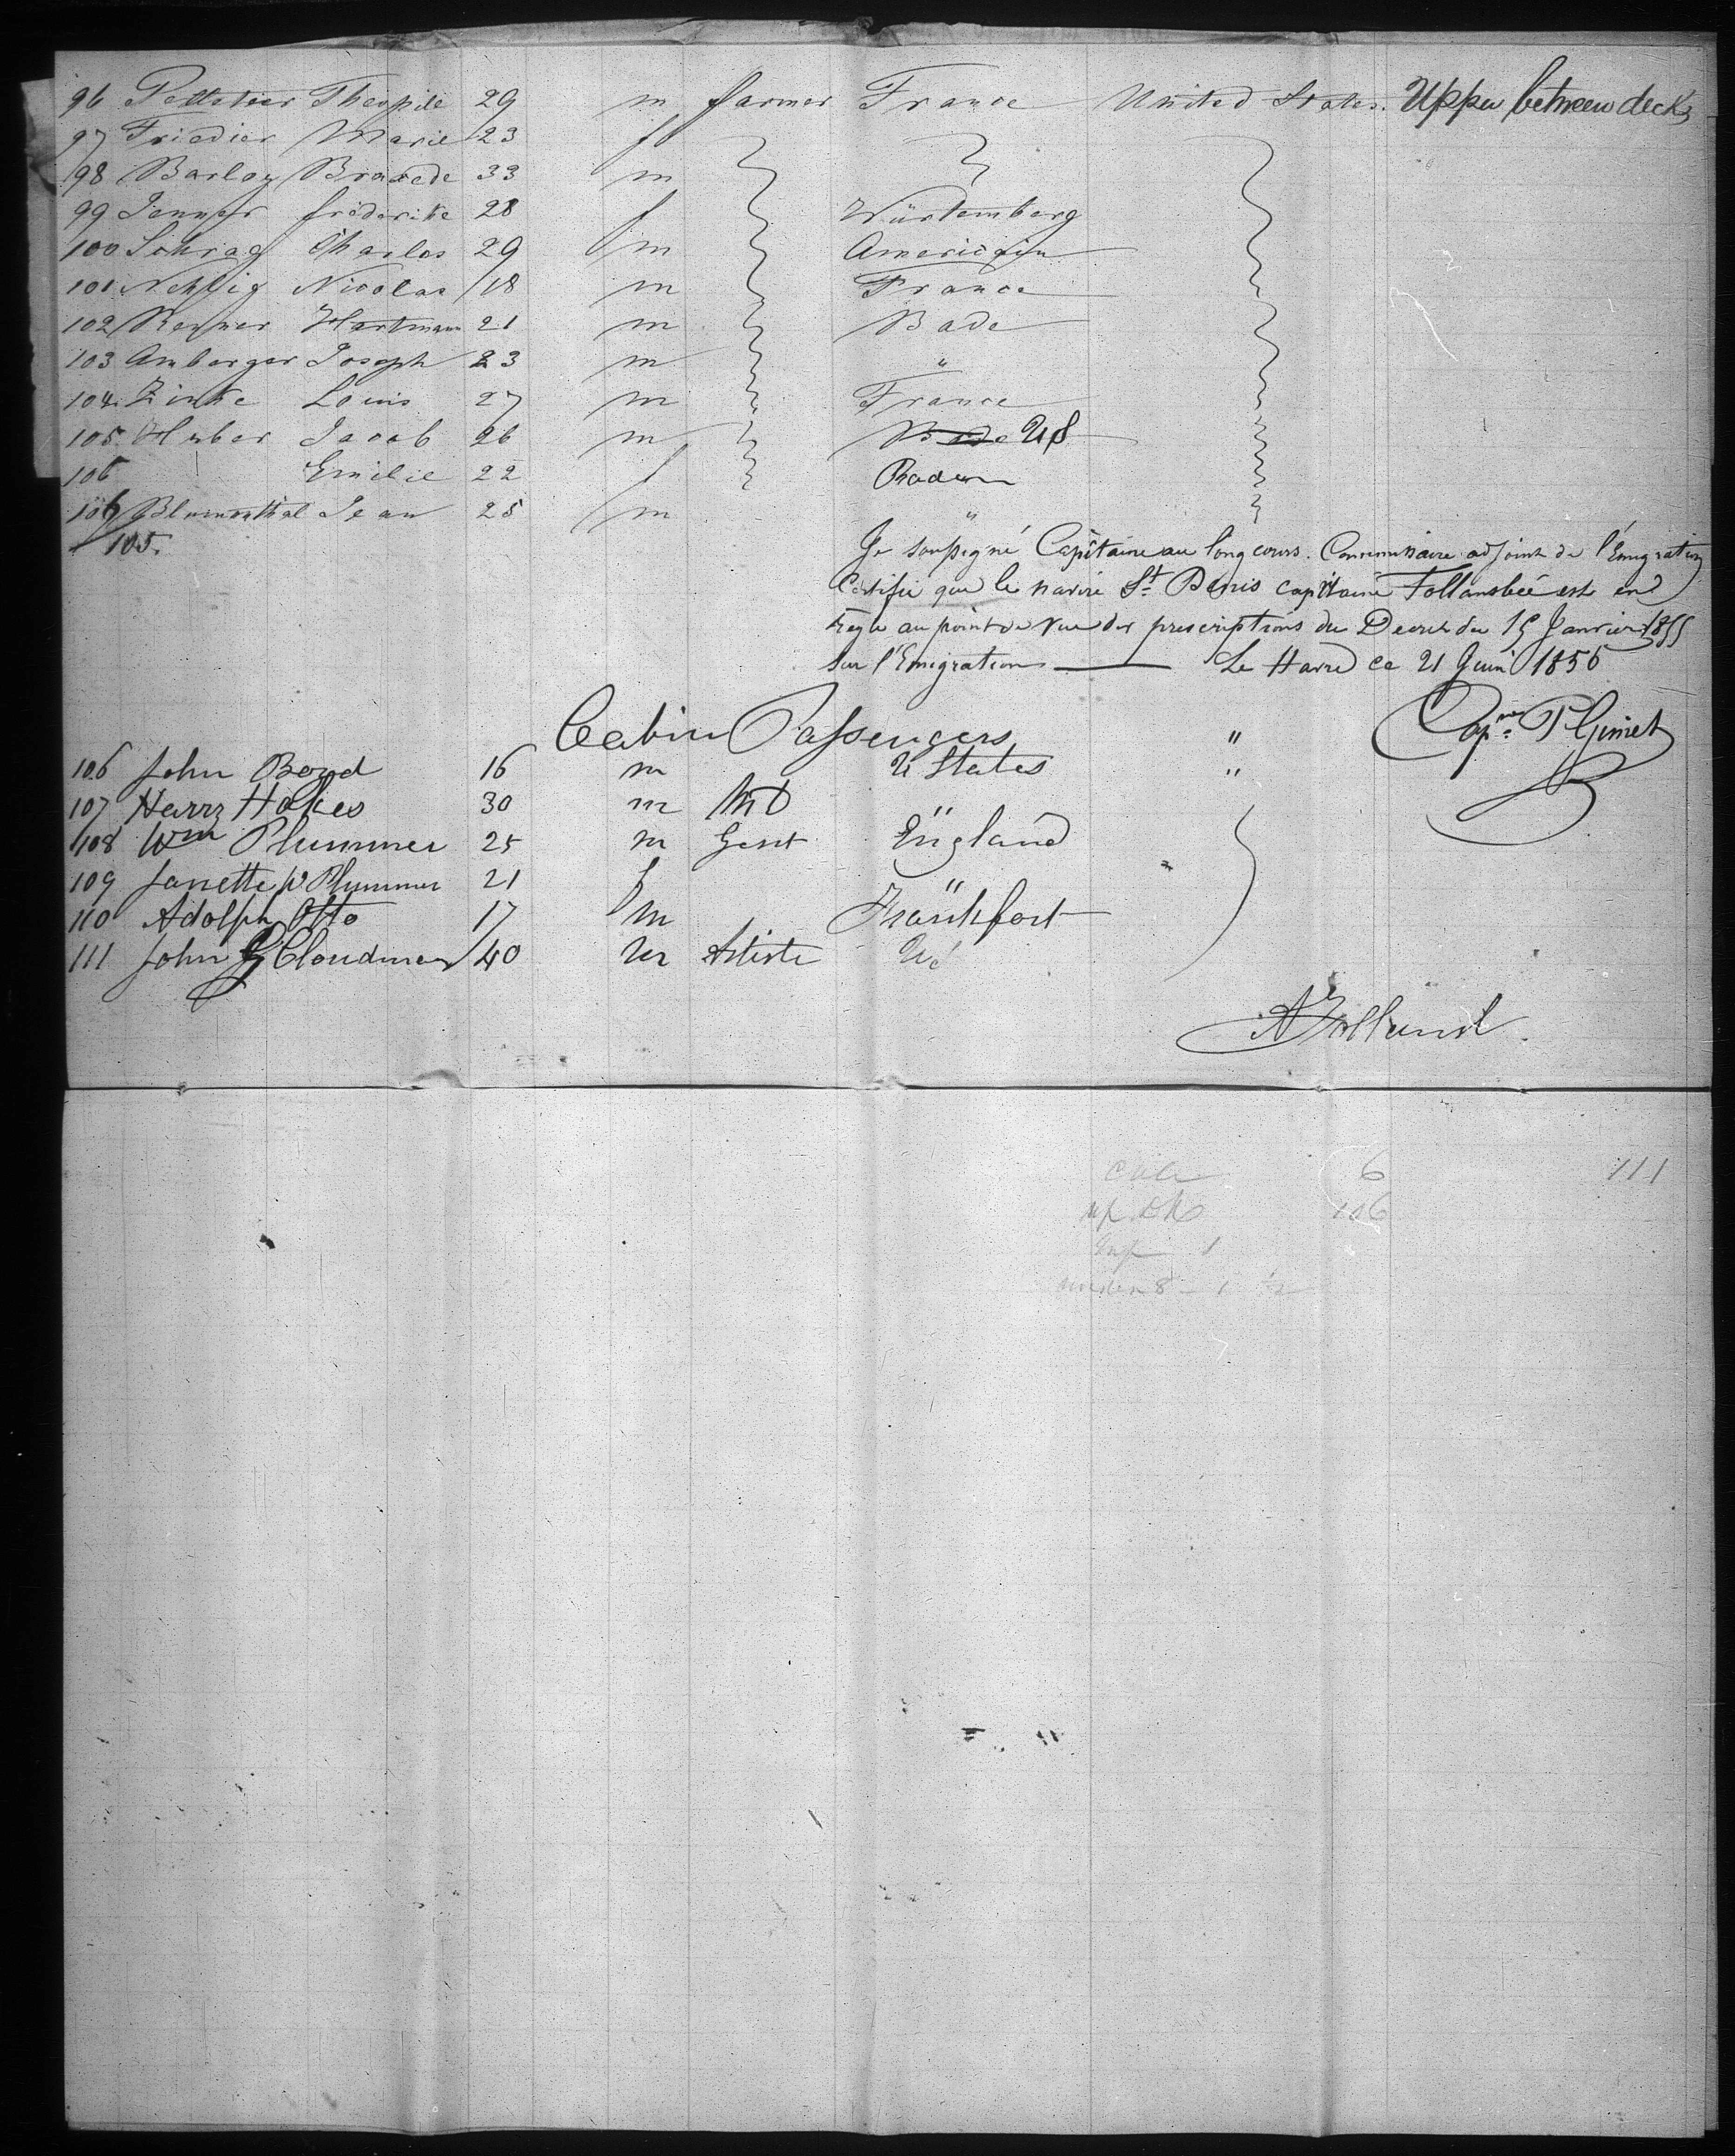 96 Pelletier Theopile 29 m farmer France United States. Upper between decks
97 Friedier Marie 23 f
98 Barloy 33 m
99 Jenner fréderike 28 f Würtemberg
100 Schrag Charles 29 m Americain
101 Nehlig Nicolas 18 m France
102 Renner Hartmann 21 m Bade
103 Amberger Joseph 23 m "
104 Zinke Louis 27 m France
105 Huber Jacob 26 m Bade US
106 Emilie 22 f Baden
106 Blumenthal Jean 25 m "
105.
Je soussigné Capitaine au long cours. Commissaire adjoint de l'Émigration
Certifie que le navire St Denis capitaine Follansbée est en
règle au point de vue des prescriptions du Decret du 15 Janvier 1855
sur l'Émigration Le Havre ce 21 Juin 1856
Cabin Passengers " Capne
106 John Boyd 16 m U States "
107 Harry Hakes 30 m MD "
108 Wm Plummer 25 m Gent England
109 Janette W Plummer 21 f "
110 Adolph Otto 17 m Frankfort
111 John G Cloudman 40 m Artiste
6 111
up DK 106
Inf 1
under 8 - 1